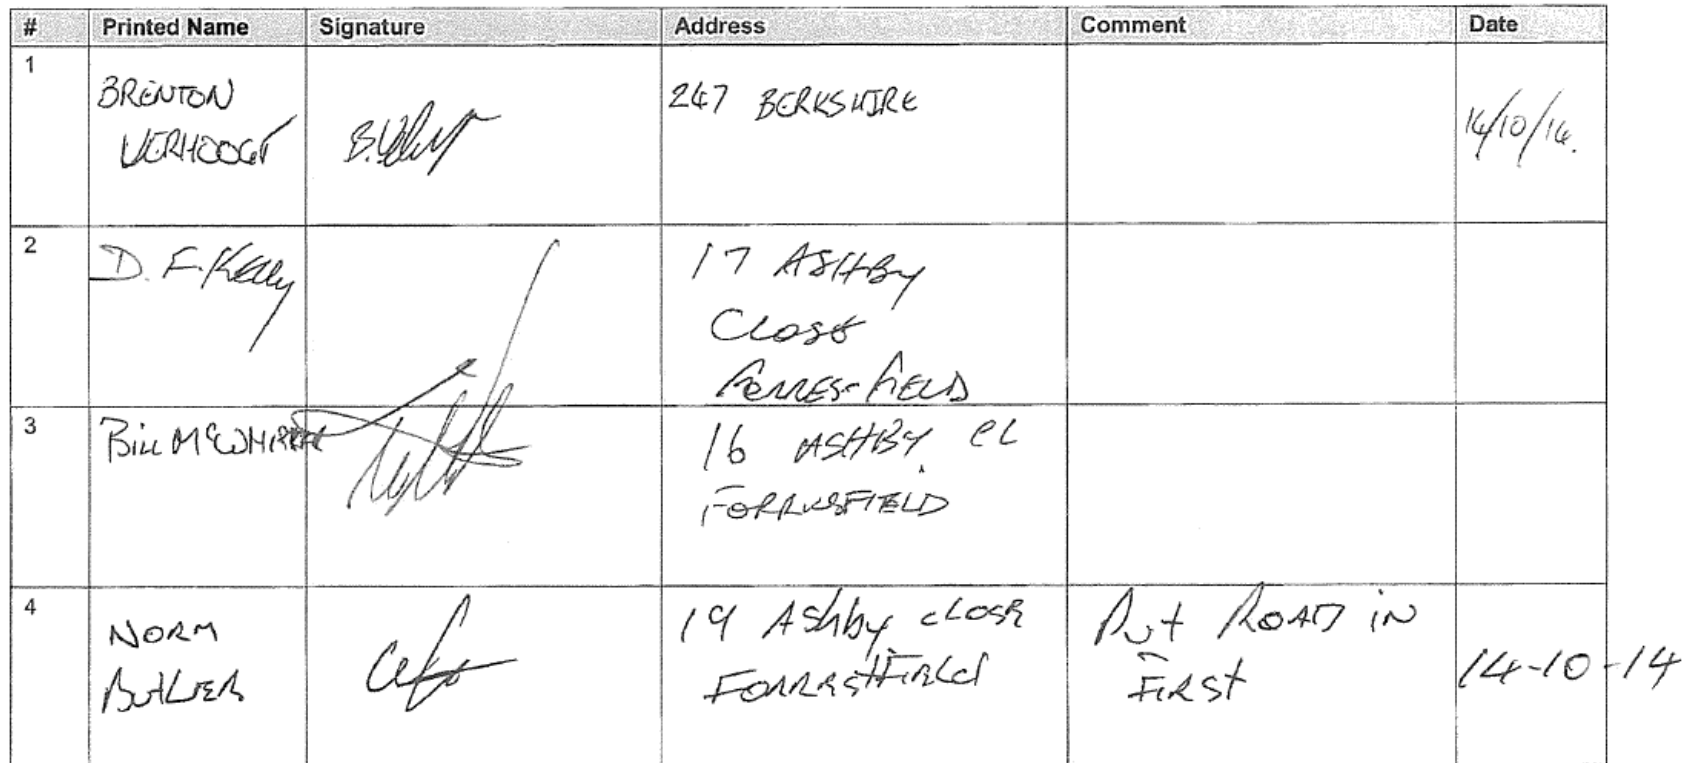 # Printed Name Signature Address Comment Date
1
BRENTON
VERHOOGT
247 BERKSHIRE
14/10/14.
2
D. F. Kelly
17 ASHBY
CLOSE
FORREST-FIELD
3
Bill
16 ASHBY CL
FORRESFIELD
4
NORM
BUTLER
19 Ashby CLOSE
FORRESTFIELD
Put ROAD iN
FIRST
14-10-14